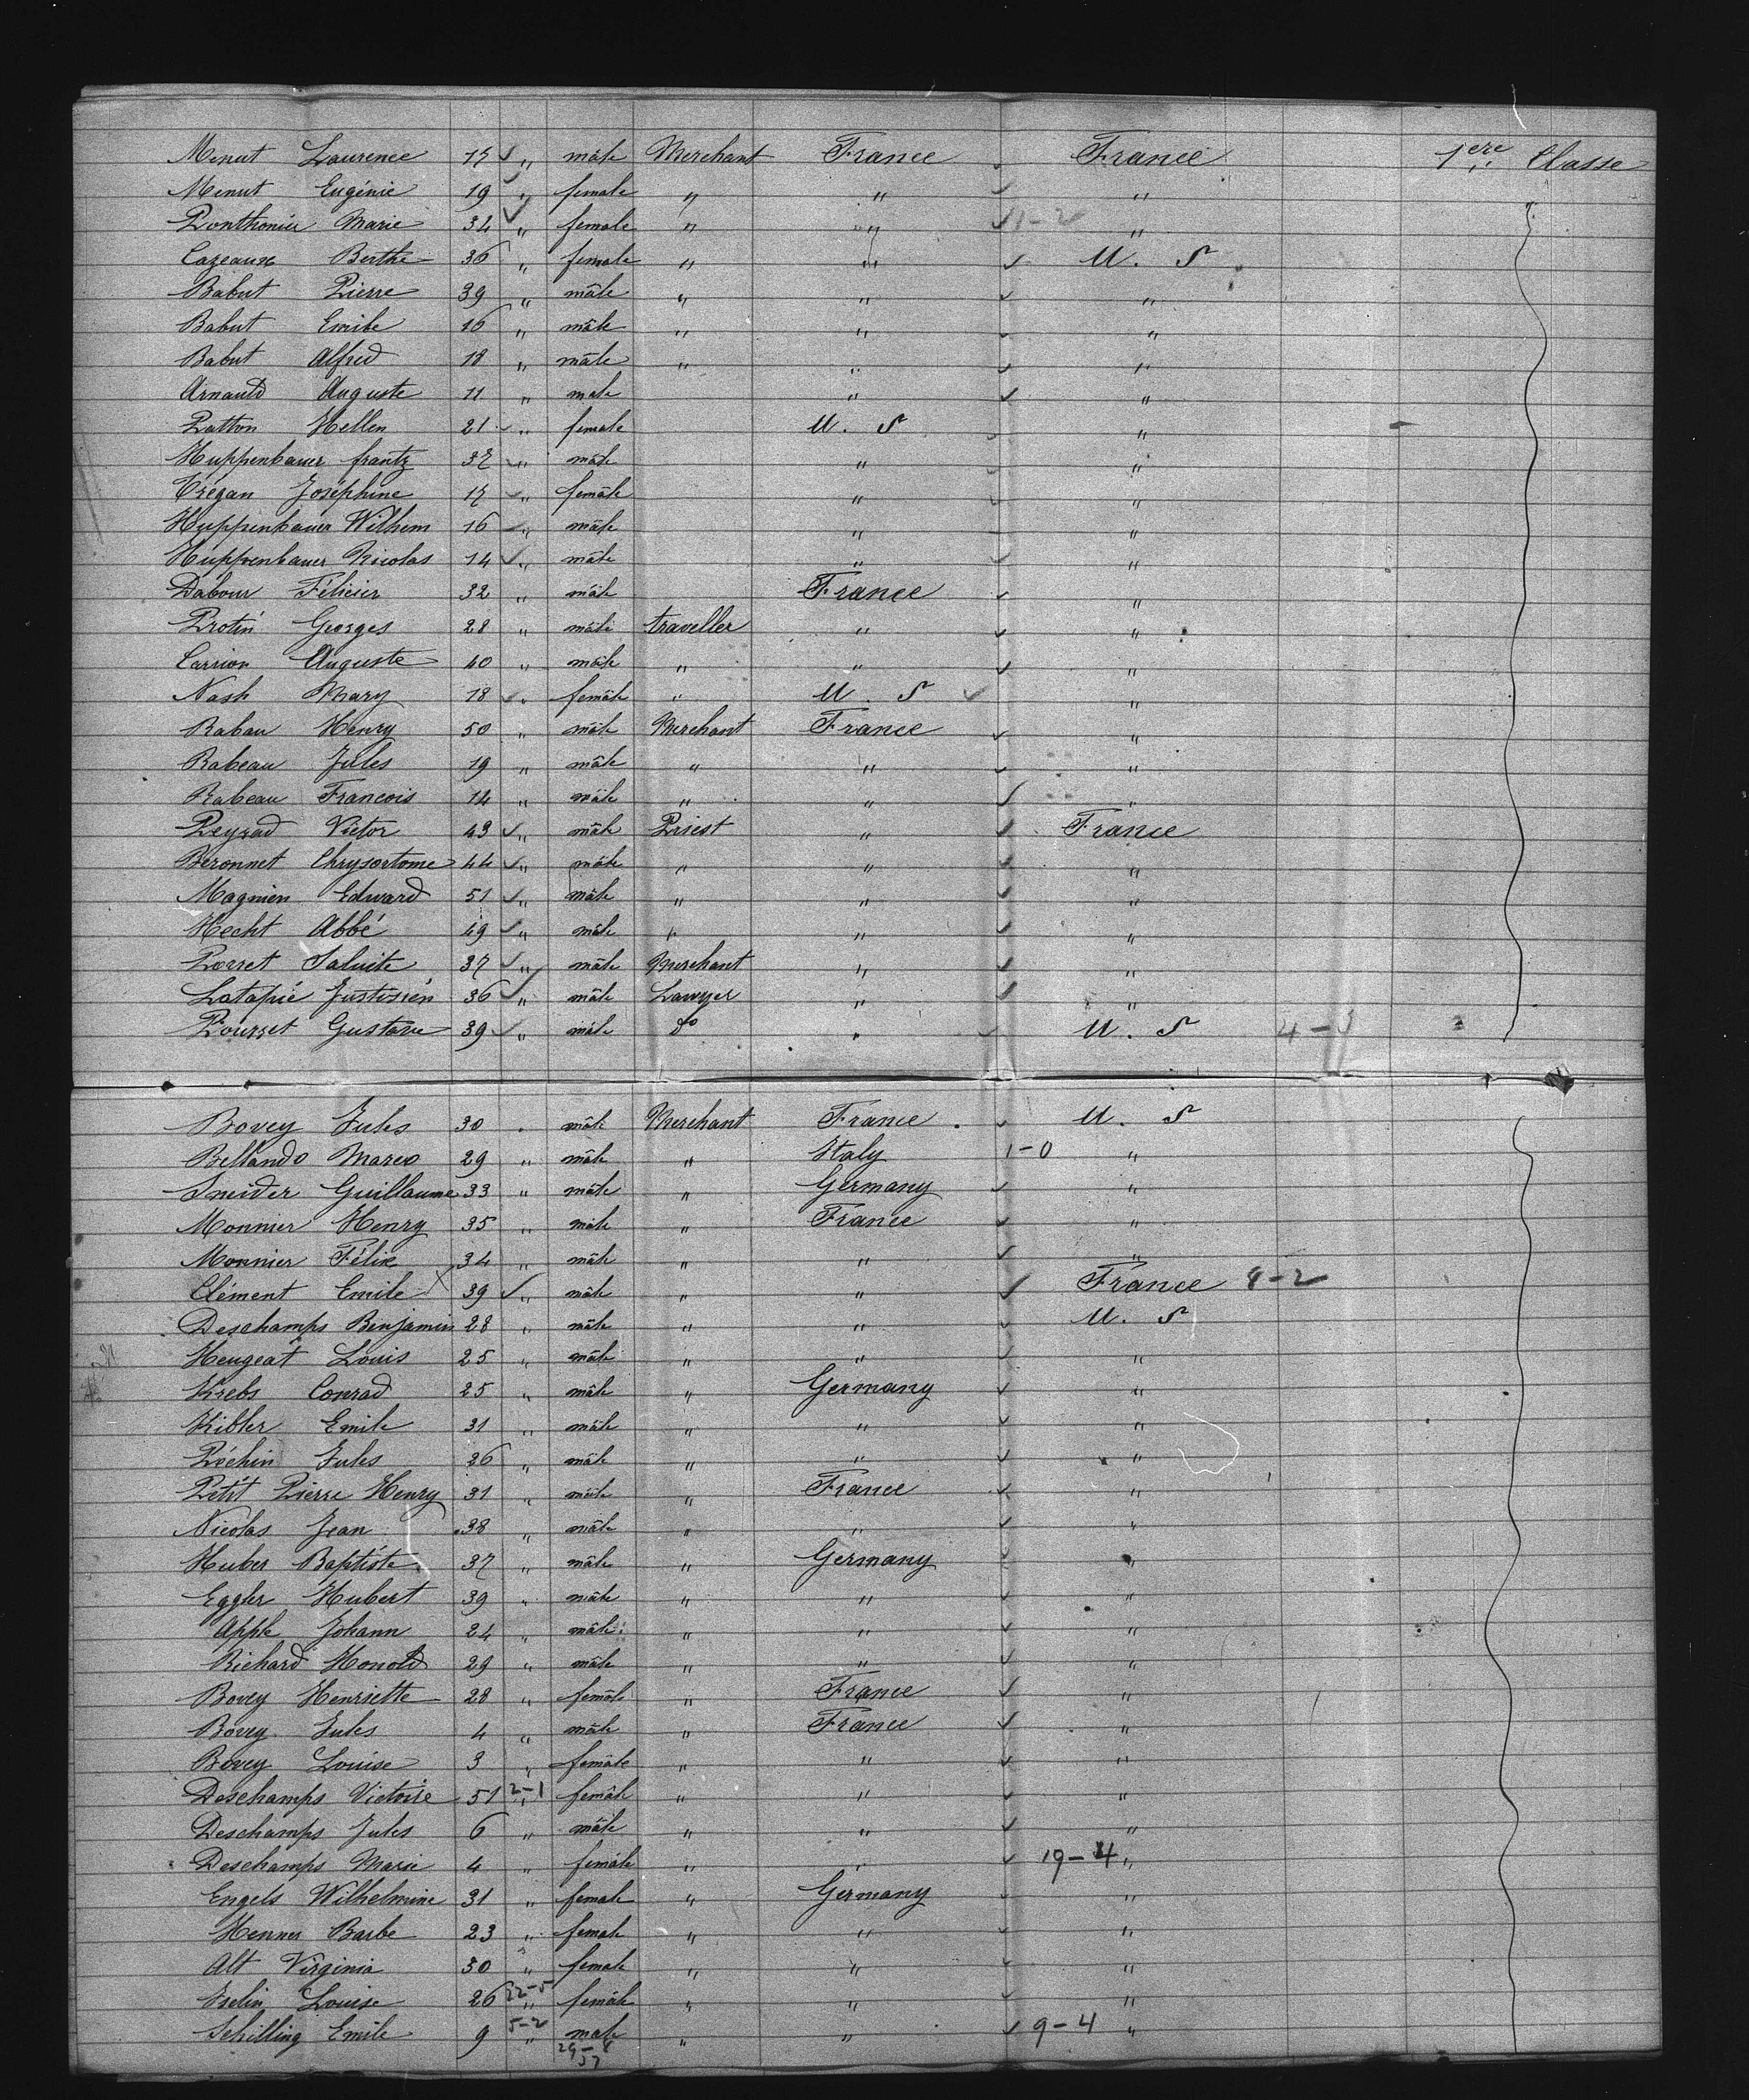 Menut Laurence 17 " mâle Merchant France France 1ere Classe
Menut Eugénie 19 " female " " "
Ponthonier Marie 34 " female " " 1-2 "
Cazeaux Berthe 36 " female " " U. S
Babut Pierre 39 " mâle " " "
Babut Emile 16 " mâle " " "
Babut Alfred 18 " mâle " " "
Arnauld Auguste 11 " male " "
Patton Hellen 21 " female U. S "
Huppenbauer frantz " mâle " "
Trégan Joséphine 17 " femâle " "
Huppenbauer Wilhem 16 " mâle " "
Huppenbauer Nicolas 14 " mâle " "
Dabour 32 " mâle France "
Protin Georges 28 " mâle traveller " "
Carrion Auguste 40 " mâle " " "
Nash Mary 18 " femâle " U. S "
Rabau Henry 50 " mâle Merchant France "
Rabeau Jules 19 " mâle " " "
Rabeau Francois 14 " mâle " " "
Peyrad Victor 43 " mâle Priest " France
Beronnet Chrysostome 44 " mâle " " "
Magnien Edward 51 " mâle " " "
Hecht Abbé 49 " mâle " " "
Porret 37 " mâle Merchant " "
Latapié 36 " mâle Lawyer " "
Pousset Gustave 39 " mâle do " U. S 4-1
Bovey Jules 30 " mâle Merchant France U. S
Bellando Marco 29 " mâle " Italy 1-0 "
Sneider Guillaume 33 " mâle " Germany "
Monnier Henry 35 " mâle " France "
Monnier Félix 34 " mâle " " "
Clément Emile 39 " mâle " " France 8-2
Deschamps Benjamin 28 " mâle " " U. S
Heugeat Louis 25 " mâle " " "
Krebs Conrad 25 " mâle " Germany "
Kibler Emile 31 " mâle " " "
Péchin Jules 26 " mâle " " "
Pétit Pierre Henry 31 " mâle " France "
Nicolas Jean 38 " mâle " " "
Huber Baptiste 37 " mâle " Germany "
Eggler Hubert 39 " mâle " " "
Apple Johann 24 " mâle " " "
Richard Honold 29 " mâle " " "
Bovey Henriette 28 " femâle " France "
Bovey Jules 4 " mâle " France "
Bovey Louise 3 " femâle " " "
Deschamps Victoire 51 2-1 " femâle " " "
Deschamps Jules 6 " mâle " " "
Deschamps Marie 4 " femâle " " 19-4 "
Engels Wilhelmine 31 " female " Germany "
Henner Barbe 23 " female " " "
Alt Virginia 30 " female " " "
Iselin Louise 26 22-5 " femâle " " "
Schilling Emile 9 5-2 " male " " 9-4 "
29-8
37